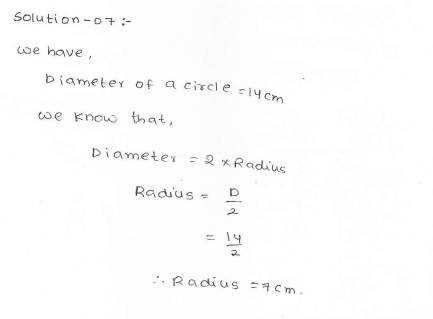 Solution-07:-
we have,
Diameter of a circle =14cm
we know that,
Diameter = 2 x Radius
Radius = D/2
= 14/2
∴ Radius =7cm.